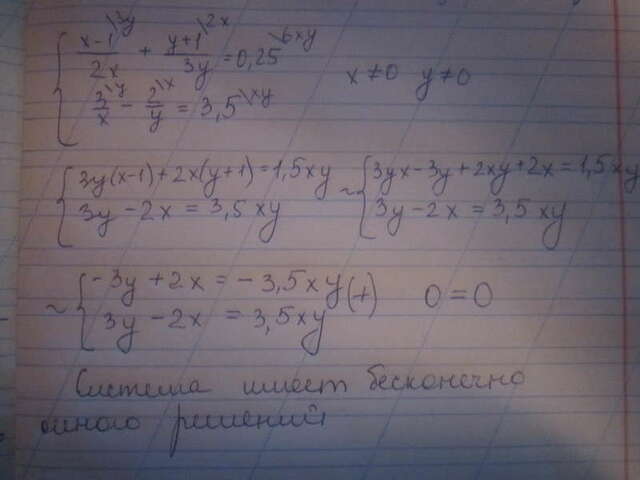 { (x-1)/2x \3y + (y+1)/3y \2x = 0,25 \6xy
x ≠ 0 y ≠ 0
3/x \y - 2/y \x = 3,5 \xy
{ 3y(x-1)+2x(y+1)=1,5xy ~ { 3yx-3y+2xy+2x=1,5xy
3y-2x=3,5xy 3y-2x=3,5xy
~ { -3y+2x=-3,5xy (+) 0=0
3y-2x=3,5xy
Система имеет бесконечно
много решений